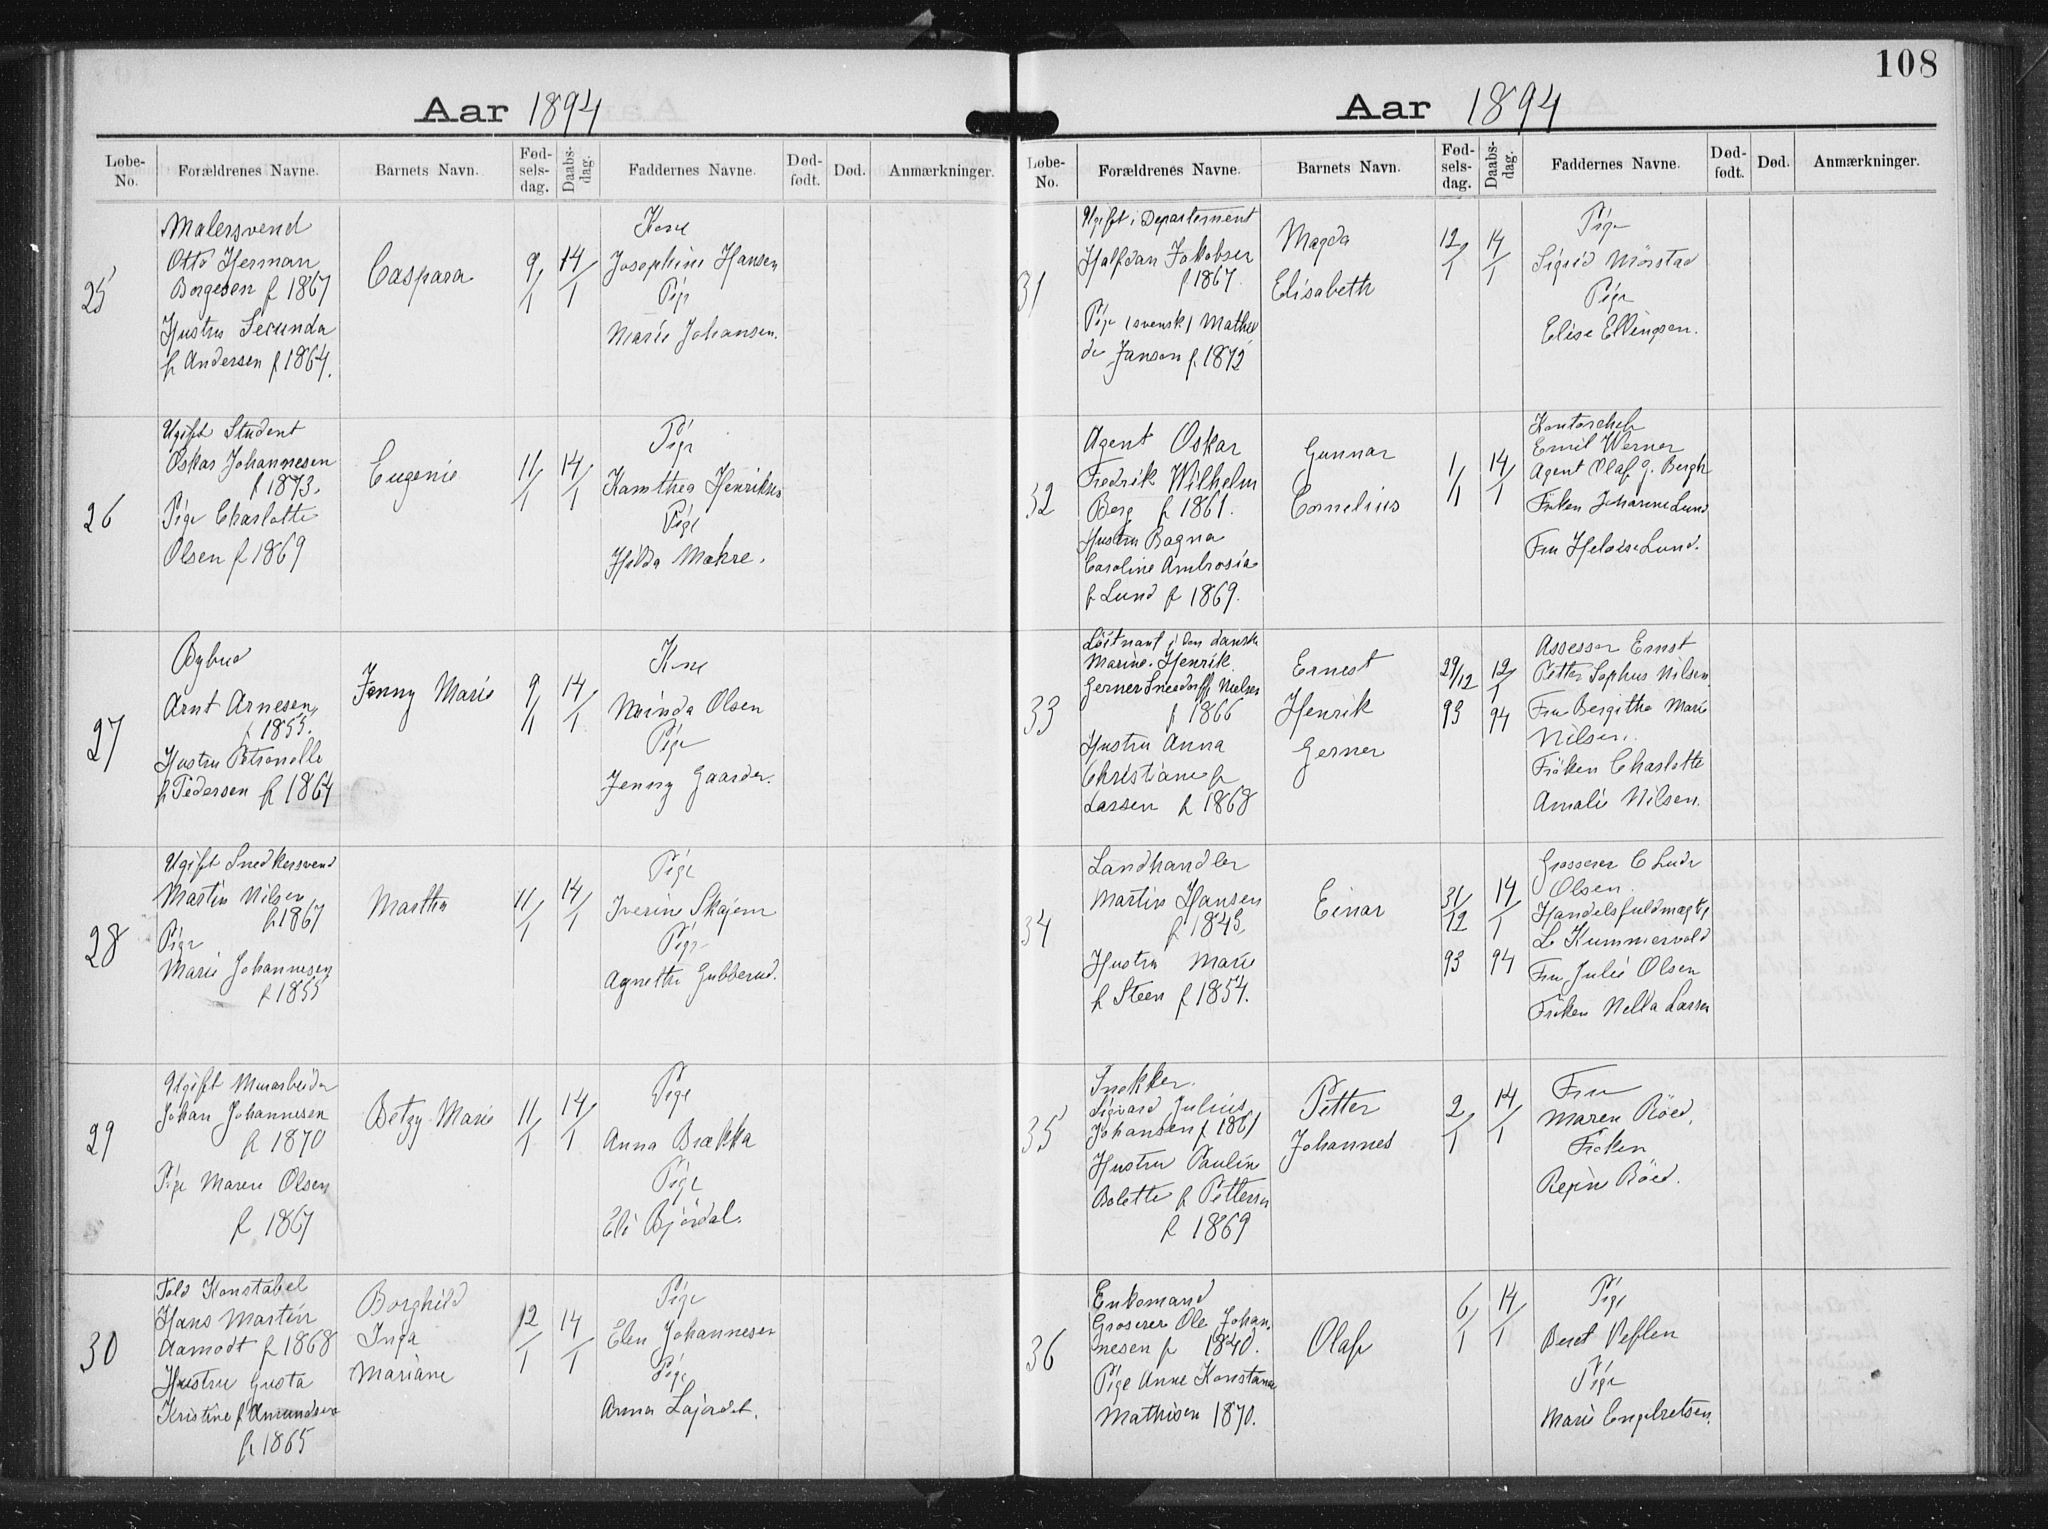 Aar 1894
Løbe-No. Forældrenes Navne. Barnets Navn. Fødselsdag. Daabsdag. Faddernes Navne. Dødfødt. Død. Anmærkninger.
25
Malersvend
Otto Herman
Borgesen f 1867
Hustru Secunda
f Andersen f 1864.
Caspara
9/1
14/1
Kone
Josephine Hansen
Pige
Marie Johansen.
26
Ugift Student
Oskar Johannesen
f 1873.
Pige Charlotte
Olsen f 1869
Eugenie
11/1
14/1
Pige
Kamthea Henriksen
Pige
Hilda Makre.
27
Bybud
Arnt Arnesen
f 1855.
Hustru Petronelle
f Pedersen f 1864
Jenny Marie
9/1
14/1
Kone
Minda Olsen
Pige
Jenny Gaarder.
28
Ugift Snedkersvend
Martin Nilsen
f 1867
Pige
Marie Johannesen
f 1855
Martha
11/1
14/1
Pige
Iverine Skajem
Pige
Agnethe Gubberud.
29
Ugift Murarbeider
Johan Johannesen
f 1870
Pige Maren Olsen
f 1867
Betzy Marie
11/1
14/1
Pige
Anna Brækka
Pige
Eli Bjørdal.
30
Told Konstabel
Hans Martin
Aamodt f 1868
Hustru Gusta
Kristine f Amundsen
f 1865
Borghild
Inga
Mariane
12/1
14/1
Pige
Elen Johannesen
Pige
Anna Løjordet.
108
Aar 1894
Løbe-No. Forældrenes Navne. Barnets Navn. Fødselsdag. Daabsdag. Faddernes Navne. Dødfødt. Død. Anmærkninger.
31
Ugift i Departement
Halfdan Jakobsen
f 1867.
Pige (svensk) Mathil
de Janson f 1872
Magda
Elisabeth
12/1
14/1
Pige
Sigrid Mörstad
Pige
Elise Ellingsen.
32
Agent Oskar
Fredrik Wilhelm
Berg f 1861.
Hustru Bagna
Caroline Ambrosia
f Lund f 1869.
Gunnar
Cornelius
1/1
14/1
Kontorchef
Emil Werner
Agent Olaf G. Bergh
Fröken Johanne Lund
Fru Heloise Lund.
33
Löitnant i den danske
Marine Henrik
Gerner Sneedorff Nielsen
f 1866
Hustru Anna
Christiane f
Larsen f 1868
Ernest
Henrik
Gerner
29/12
93
12/1
94
Assessor Ernst
Petter Sophus Nilsen
Fru Bergitha Marie
Nilsen.
Fröken Charlotte
Amalie Nilsen.
34
Landhandler
Martin Hansen
f 1843
Hustru Marie
f Steen f 1854.
Einar
31/12
93
14/1
94
Grosserer C Ludv
Olsen.
Handelsfuldmægtig
L Kummervold
Fru Julie Olsen
Fröken Nella Larsen
35
Snekker
Sigvard Julius
Johansen f 1861
Hustru Pauline
Bolette f Pettersen
f 1869
Petter
Johannes
2/1
14/1
Fru
Maren Röed.
Fröken
Regine Röed.
36
Enkemand
Groserer Ole Johan-
nesen f 1840.
Pige Anne Konstanse
Mathisen 1870.
Olaf
6/1
14/1
Pige
Beret Veflen
Pige
Marie Engebretsen.